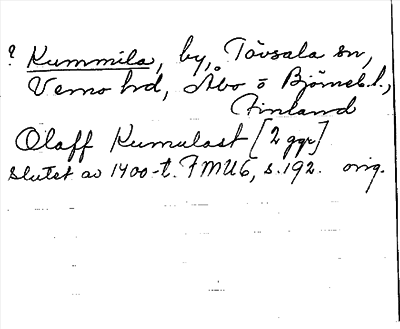 ? Kummila, by, Tövsala sn,
Vemo hd, Åbo o Björneb. l.,
Finland
Olaff Kumulast [2 ggr]
Slutet av 1400-t. FMU6, s. 192. orig.